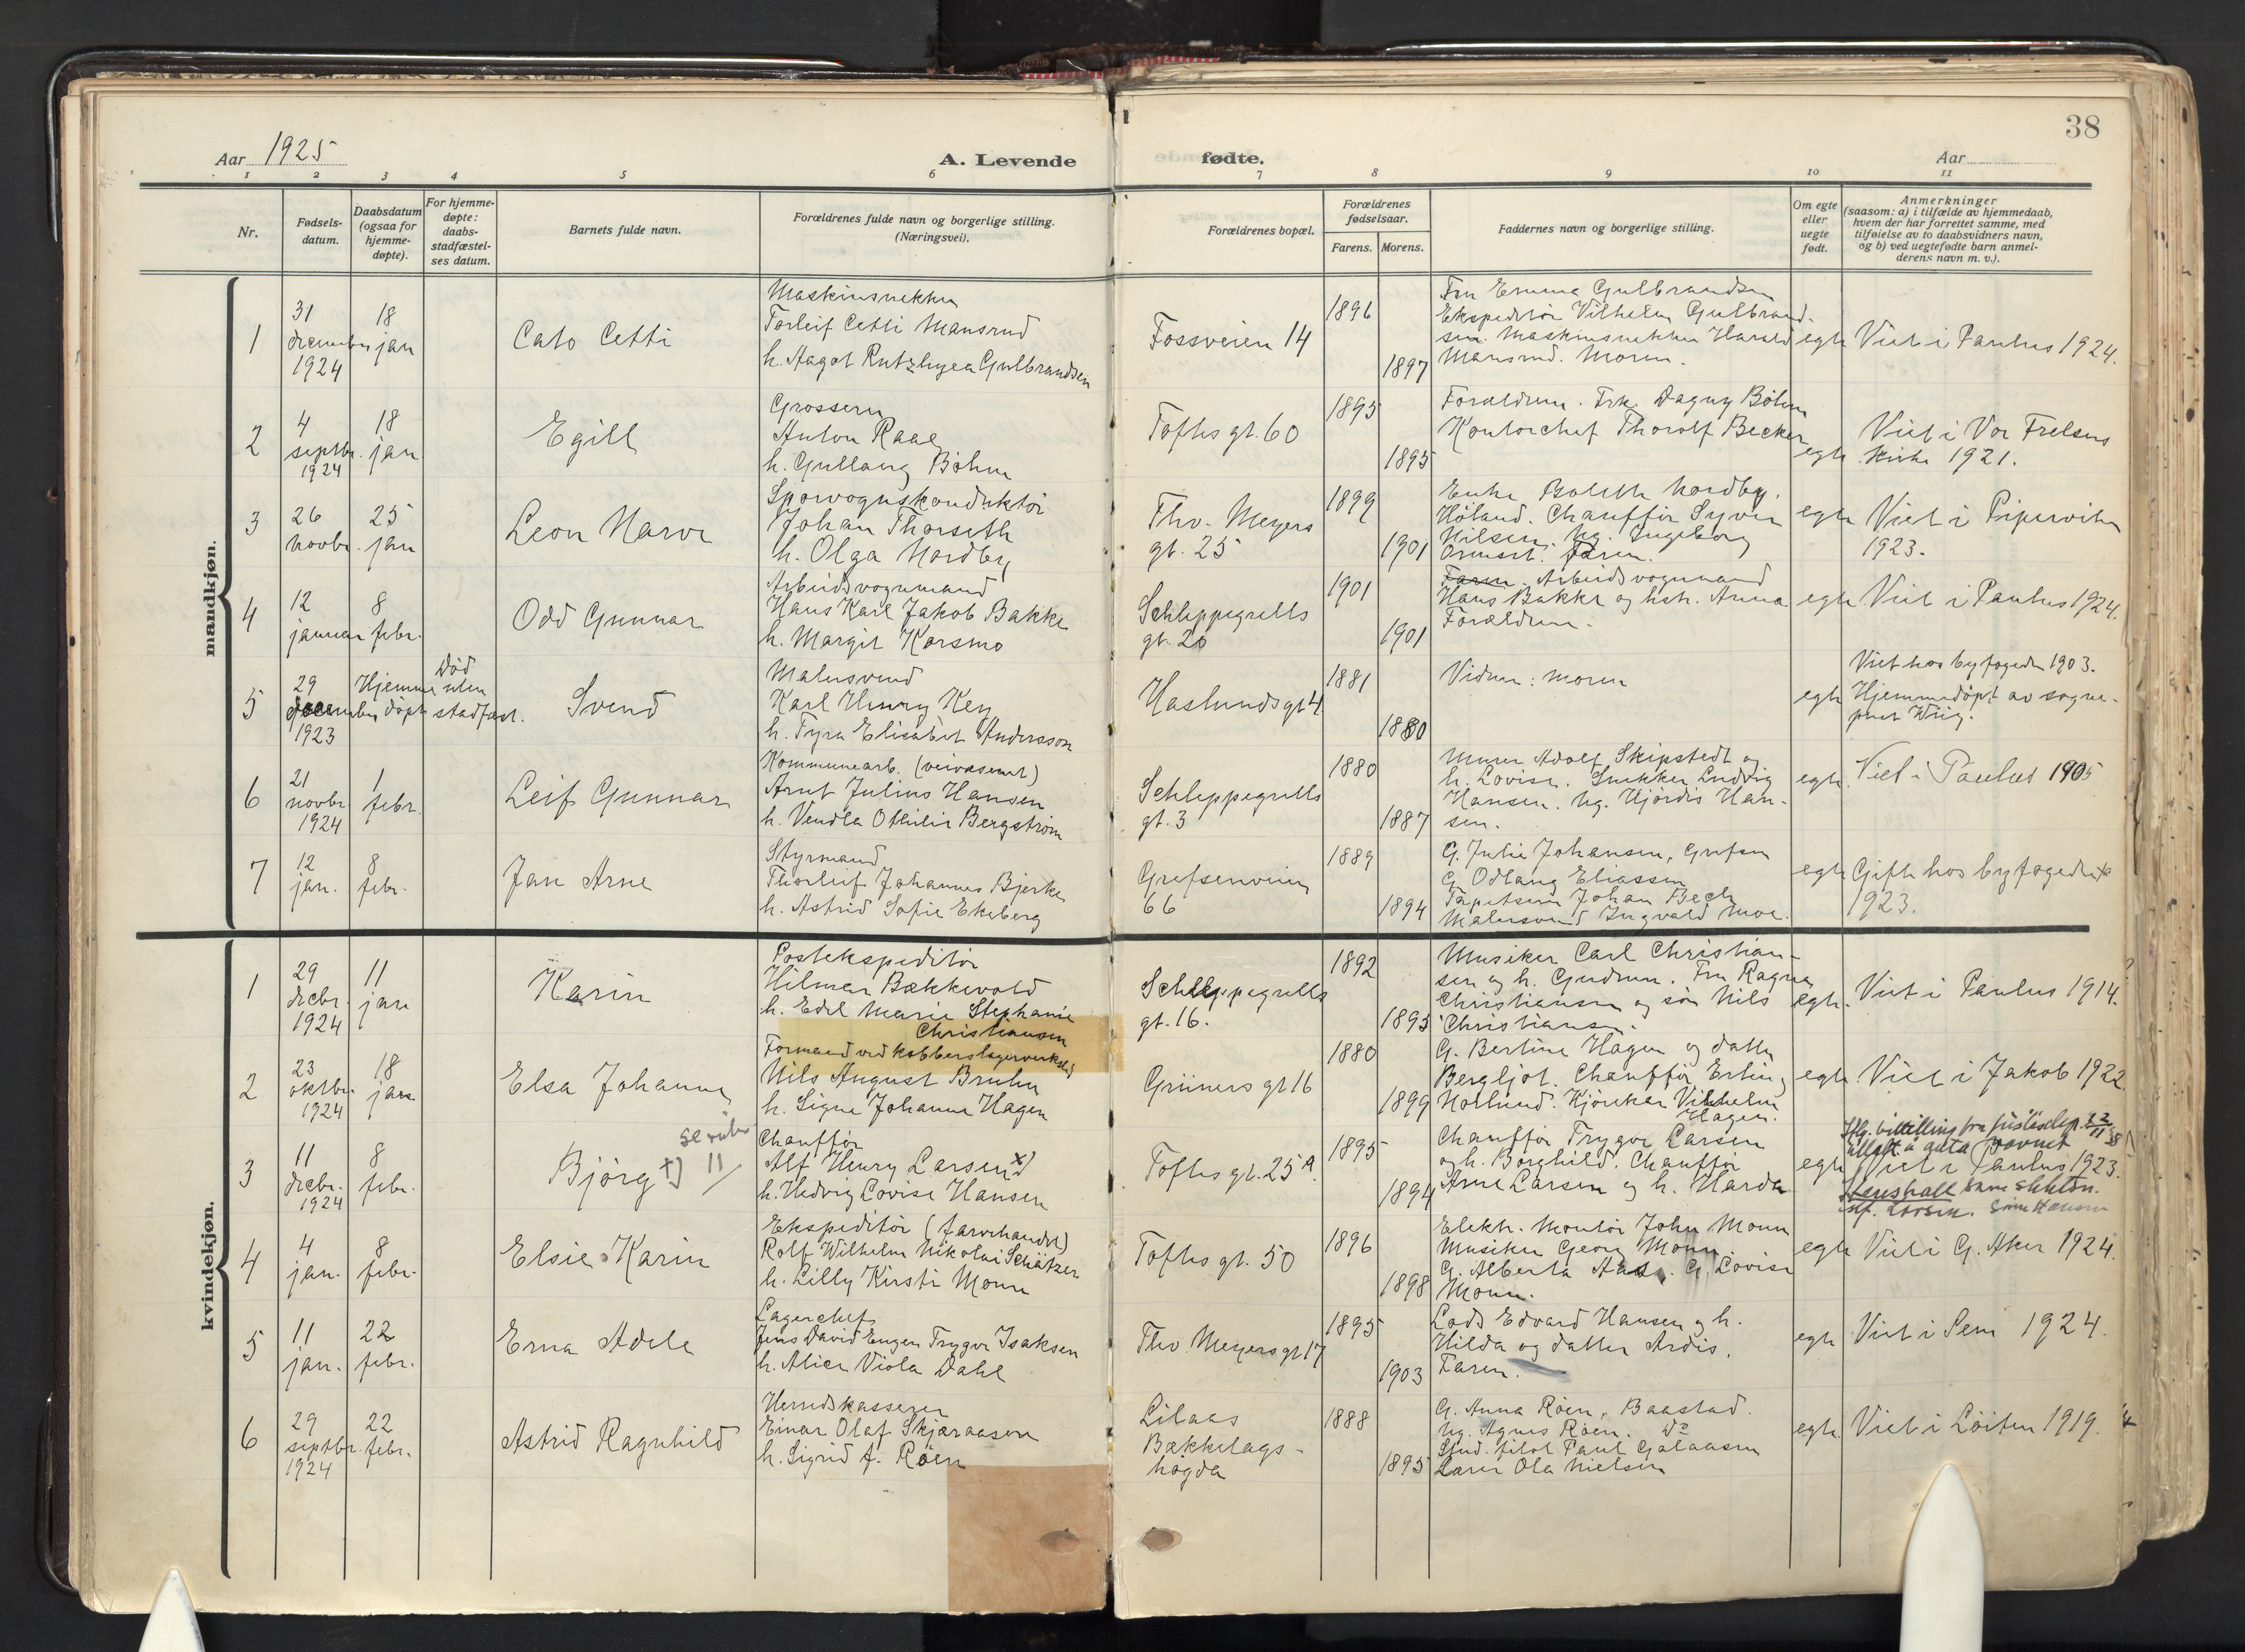 38
Aar 1925
A. Levende
fødte.
Aar
1 2 3 4 5 6 7 8 9 10 11
Nr.
Fødsels-
datum.
Daabsdatum
(ogsaa for
hjemme-
døpte).
For hjemme-
døpte:
daabs-
stadfæstel-
ses datum.
Barnets fulde navn.
Forældrenes fulde navn og borgerlige stilling.
(Næringsvei).
Forældrenes bopæl.
Forældrenes
fødselsaar.
Farens. Morens.
Faddernes navn og borgerlige stilling.
Om egte
eller
uegte
født.
Anmerkninger
(saasom: a) i tilfælde av hjemmedaab,
hvem der har forrettet samme, med
tilføielse av to daabsvidners navn,
og b) ved uegtefødte barn anmel-
derens navn m. v.).
mandkjøn.
1
31
december
1924
18
jan
Cato Cetti
Maskinsnekker
Torleif Cetti Mansrud
h. Aagot Gulbrandsen
Fossveien 14
1896
1897
Fru Emma Gulbrandsen
Ekspeditør Vilhelm Gulbrand-
sen. Maskinsnekker Harald
Mansrud. Moren.
egte
Viet i Paulus 1924.
2
4
septbr.
1924
18
jan
Egill
Grosserer
Anton Raae
h. Gullaug Böhm
Tofthsgt. 60
1895
1895
Forældrene. Frk. Dagny Böhm
Kontorchef Thorolf Becker
egte
Viet i Vor Frelsers
kirke 1921.
3
26
novbr.
25
jan
Leon Harve
Sporvognskonduktör
Johan Thorseth
h. Olga Nordby
Thv. Meyers
gt. 25
1899
1901
Enke Nordby.
Høland. Chauffør Syver
Nilsen. Ug. Ingeborg
Faren.
egte
Viet i Pipervika
1923.
4
12
januar
8
febr.
Odd Gunnar
Arbeidsvognmand
Hans Karl Jakob Bakke
h. Margit Korsmo
Schleppegrells
gt. 20
1901
1901
Faren. Arbeidsvognmand
Hans Bakke og hst. Anna
Forældrene.
egte
Viet i Paulus 1924.
5
29
december
1923
Hjemme
døpt
Død
uten
stadfæst.
Svend
Malersvend
Karl Henry Key
h. Tyra Elisabet Andersson
Haslunds gt 4
1881
1880
Vidner: moren
egte
Viet hos byfogeden 1903.
Hjemmedøpt av sogne-
prest Wiig.
6
21
novbr
1924
1
febr.
Leif Gunnar
Kommunearb. (veivæsenet)
Arnt Julius Hansen
h. Vendla Othilie Bergström
Schleppegrells
gt. 3
1880
1887
Murer Adolf Skipstedt og
h. Lovise. Snekker Ludvig
Hansen. Ug. Hjördis Han-
sen.
egte
Viet i Paulus 1905
7
12
jan.
8
febr.
Jan Arne
Styrmand
Thorleif Johannes Bjerke
h. Astrid Sofie Ekeberg
Grefsenveien
66
1889
1894
G. Julie Johansen, Grefsen
G. Odlaug Eliassen
Tapetserer Johan Bech
Malersvend Ingvald Moe.
egte
Gifte hos byfogeden
1923.
kvindekjøn.
1
29
decbr.
1924
11
jan
Karin
Postekspeditör
Hilmar Bækkevold
h. Edel Marie Stephanie
Christiansen
Schleppegrells
gt. 16.
1892
1895
Musiker Carl Christian-
sen og h. Gudrun. Fru Ragna
Christiansen og sön Nils
Christiansen.
egte.
Viet i Paulus 1914.
2
23
oktbr.
1924
18
jan.
Elsa Johanne
Formand ved kobberslagerverksted
Nils August Bruhn
h. Signe Johanne Hagen
Grüners gt 16
1880
1899
G. Bertine Hagen og datter
Bergljot. Chauffør Erling
Norlund. Kjörekar Vilhelm
Hagen.
egte
Viet i Jakob 1922.
3
11
decbr.
1924
8
febr.
Bjørg
11
Chauffør
Alf Henry Larsen x)
h. Hedvig Lovise Hansen
Tofthsgt. 25 A
1895
1894
Chauffør Trygve Larsen
og h. Borghild. Chauffør
Arne Larsen og h. Harda
egte
Viet i Paulus 1923.
4
4
jan.
8
febr.
Elsie Karin
Ekspeditör (farvehandel)
Rolf Wilhelm Nikolai Schätzer
h. Lilly Kirsti Monn
Tofths gt. 50
1896
1898
Elektr. Montör John Monn
Musiker Georg Monn
G. Alberta Aas. G. Lovise
Monn.
egte
Viet i G. Aker 1924.
5
11
jan.
22
febr.
Erna Adele
Lagerchef
Jens David Eugen Trygve Isaksen
h. Alice Viola Dahl
Thv. Meyers gt 17
1895
1903
Lods Edvard Hansen og h.
Hilda og datter Ardis.
Faren.
egte
Viet i Sem 1924.
6
29
septbr.
1924
22
febr.
Astrid Ragnhild
Herredskasserer
Einar Olaf Skjæraasen
h. Sigrid A. Røen
Lilaas
Bækkelags-
høgda
1888
1895
G. Anna Röen, Baastad.
Ug. Agnes Röen. Do
Stud. filol Paul Galaasen
Lærer Ola Nielsen
egte
Viet i Löiten 1919.